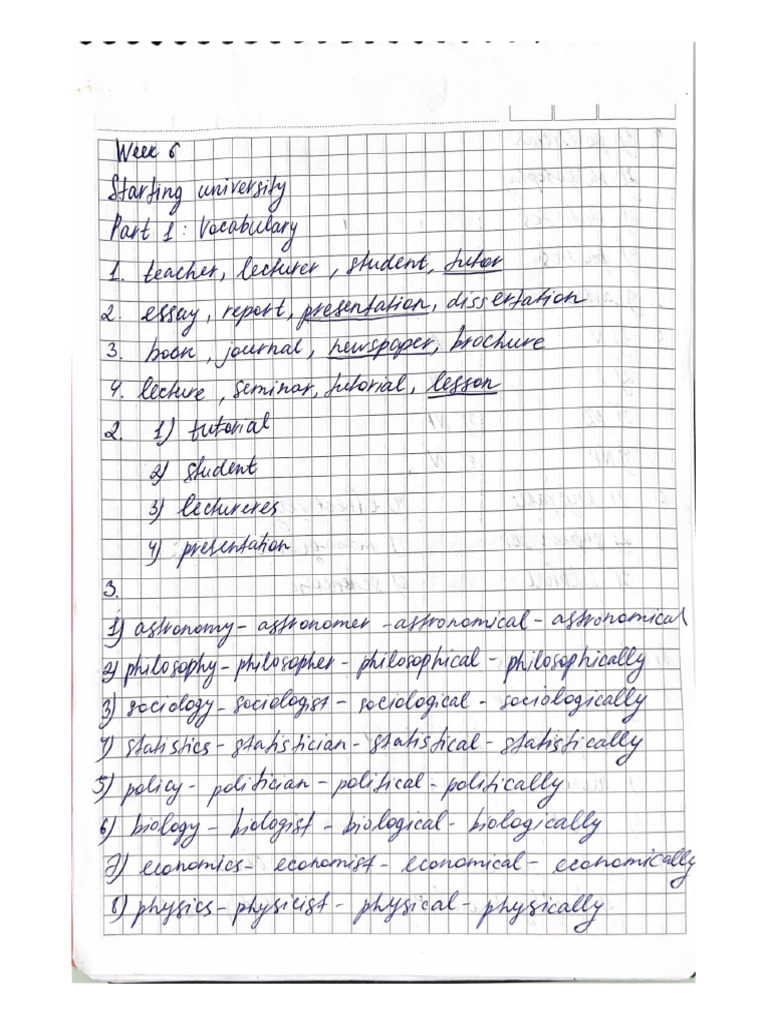 Week 6
Starting university
Part 1: Vocabulary
1. teacher, lecturer, student, tutor
2. essay, report, presentation, dissertation
3. book, journal, newspaper, brochure
4. lecture, seminar, tutorial, lesson
2. 1) tutorial
2) student
3) lectureres
4) presentation
3.
1) astronomy - astronomer - astronomical - astronomical
2) philosophy - philosopher - philosophical - philosophically
3) sociology - sociologist - sociological - sociologically
4) statistics - statistician - statistical - statistically
5) policy - politician - political - politically
6) biology - biologist - biological - biologically
7) economics - economist - economical - economically
8) physics - physicist - physical - physically